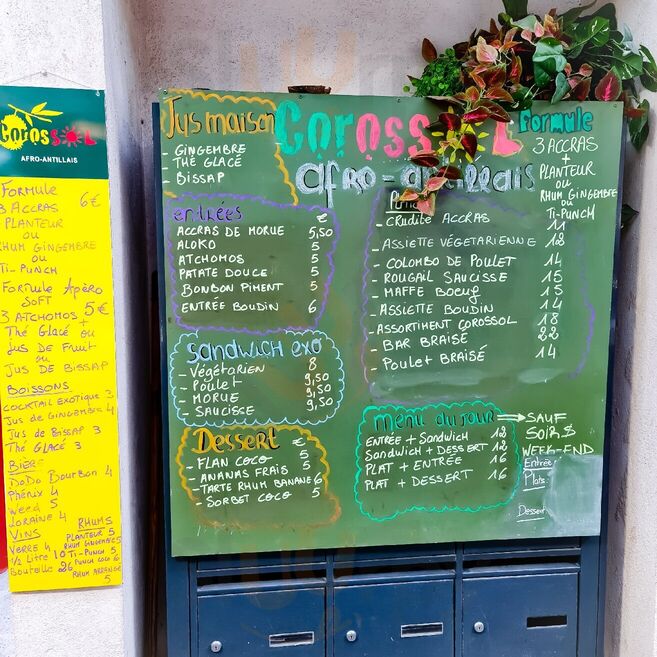 Corossol
AFRO-ANTILLAIS
FORMULE
3 ACCRAS 6€
PLANTEUR
OU
RHUM GINGEMBRE
OU
TI-PUNCH
FORMULE Apéro
SOFT
3 ATCHOMOS 5€
+
Thé Glacé ou
JUS DE FRUIT
ou
JUS DE BISSAP
BOISSONS
COCKTAIL EXOTIQUE 3
Jus de GINGEMBRE 4
Jus de BISSAP 3
Thé GLACÉ 3
BIÈRE
DODO BOURBON 4
Phénix 4
Weed 5
Loraine 4
VINS
VERRE 4
1/2 Litre 10
Bouteille 26
RHUMS
PLANTEUR 5
RHUM GINGEMBRE 5
TI-PUNCH 5
PUNCH COCO 6
RHUM ARRANGÉ
5
Jus maison
- GINGEMBRE
- THÉ GLACÉ
- BISSAP
COROSSOL
afro-antillais
entrées €
ACCRAS DE MORUE 5,50
ALOKO 5
ATCHOMOS 5
PATATE DOUCE 5
BONBON PIMENT 5
ENTRÉE BOUDIN 6
Sandwich exo
- Végétarien 8
- Poulet 9,50
- MORUE 9,50
- SAUCISSE 9,50
Dessert €
- FLAN COCO 5
- ANANAS FRAIS 5
- TARTE RHUM BANANE 6
- SORBET COCO 5
- CRUDITÉ ACCRAS 11
- ASSIETTE VÉGETARIENNE 12
- COLOMBO DE POULET 14
- ROUGAIL SAUCISSE 15
- MAFFE BOEUF 15
- ASSIETTE BOUDIN 14
- ASSORTIMENT COROSSOL 18
- BAR BRAISÉ 22
- POULET BRAISÉ 14
Menu du jour
ENTRÉE + SANDWICH 12
SANDWICH + DESSERT 12
PLAT + ENTRÉE 16
PLAT + DESSERT 16
SAUF
SOIR.S
WEEK-END
Entrée:
Plats:
Dessert
Formule
3 ACCRAS
+
PLANTEUR
OU
RHUM GINGEMBRE
OU
TI-PUNCH